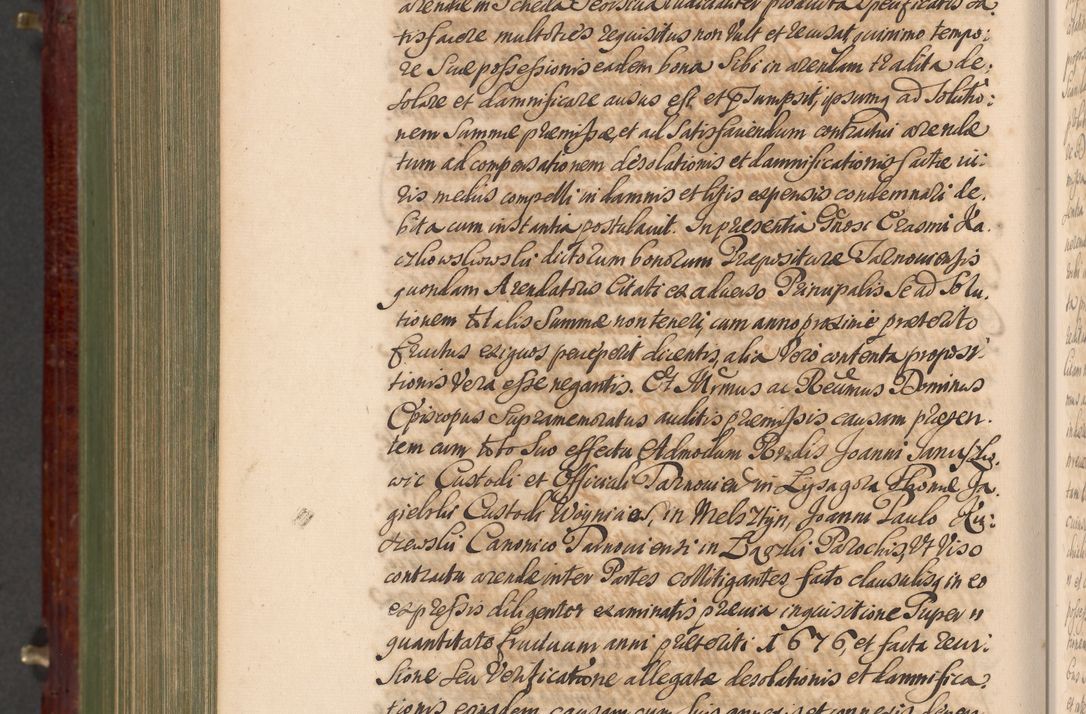 arendæ in Scheda seorsiva iudicialiter producta specificatis sa
tisfacere multoties requisitus non vult et recusat, quinimo tempo:
re suæ possessionis eadem bona sibi in arendam tradita de:
solare et damnificare ausus est, et præsumpsit, ipsumq ad solutio:
nem summæ præmissæ, et ad satisfaciendum contractui arendæ
tum ad compensationem desolationis et damnificationis factæ iu:
ris mediis compelli in damnis et litis expensis condemnari de.
bita cum instantia postulavit. In præsentia Gnosi Erasmi Ka.
czkowskowski dictorum bonorum Præpositura Tarnoviensis
quondam Arendatoris Citati ex adverso Principalis se ad solu.
tionem totalis summæ non teneri, cum anno proxime præterito
fructus exiguos perceperit dicentis, alia vero contenta proposi:
tionis vera esse negantis. Et Illrmus ac Reudmus Dominus
Episcopus supramemoratus auditis præmissis causam præsen.
tem cum toto suo effectu Admodum Rndis Joanni Januszko.
wic Custodi et Officiali Tarnovien in Lysagora Thomæ Ja.
gielski Custodi Woynicien, in Melsztyn, Joanni Paulo
Canonico Tarnoviensi in Parochis, Ut viso
contractu arendæ inter Partes collitigantes facto clausulisq in eo
expressis diligenter examinatis prævia inquisitione super
quantitate fructuum anni præteriti 1676, et facta revi:
sione seu verificatione allegatæ desolationis et damnifica:
tionis eiusdem, causam cum suis annexis et connexis